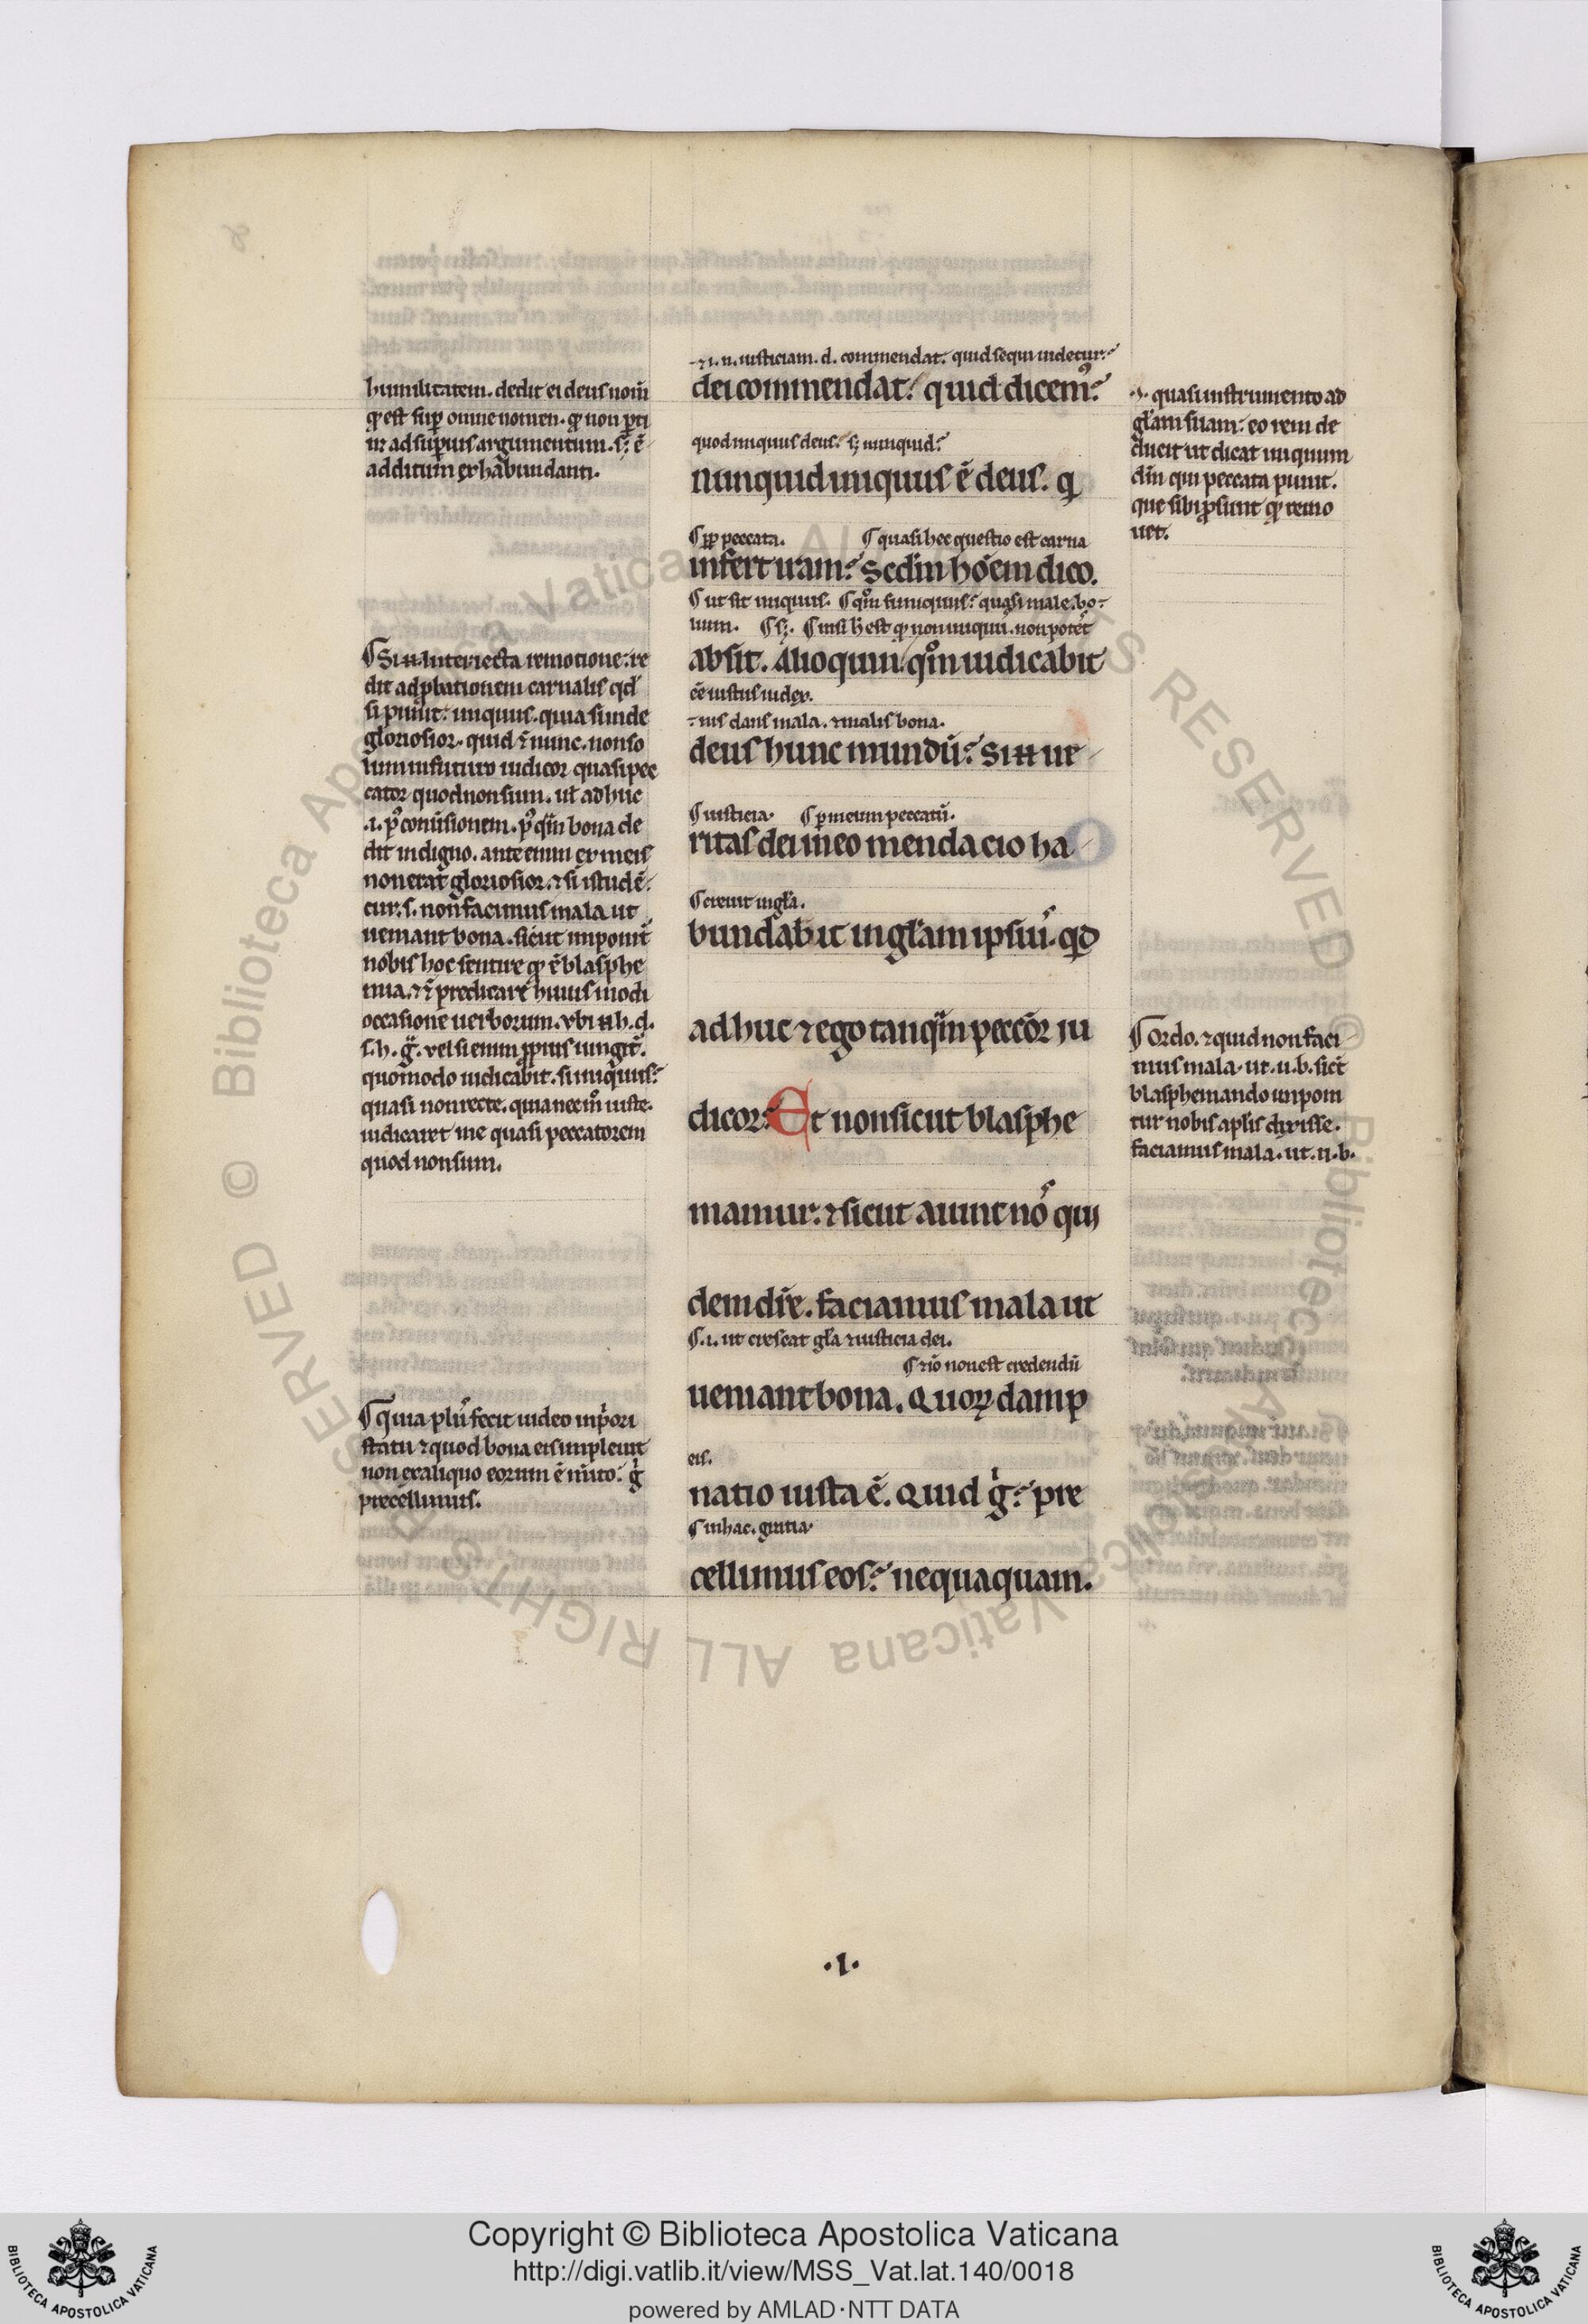 humilitatem. dedit ei deus nom̄
qͥ est suꝑ omne nomen. qͥ non ꝑti
net ad supius argumentum. sꝫ ē
additum ex habundanti.
¶ Si .n. Interiecta remotione: re
dit ad ꝓbationem carnalis qd̄
si punit: iniquus. quia sit inde
gloriosior. quid ⁊ nunc. non so
lum in futuro iudicor quasi pec
cator quod non sum. ul̄ adhuc
.i. pꝰ conūsionem. pꝰ qm̄ bona de
dit indigno. ante enim ex meis
non erat gloriosior. ⁊ si istud ē:
cur .s. non facimus mala ut
ueniant bona. sicut imponit̄
nobis hoc sentire qͥ ē blasphe
mia. ⁊ predicare huius modi
occasione uerborum. ubi .n. h. d.
s. h. g. uel si enim ꝓpius iungit̄.
quomodo iudicabit. si iniquus?
quasi non recte. quia nec m̊ iuste.
iudicaret me quasi peccatorem
quod non sum.
¶ quia plus fecit iudeo in pͥori
statu ⁊ quod bona eis impleuit
non ex aliquo eorum ē mito: gͥ
precellimus.
.i. n. iusticiam. d. commendat. quid sequi uidetur?
dei commendat? quid dicemꝰ?
quod iniquus deus? sꝫ nunquid?
nunquid iniquus ē deus. qͥ
¶ ꝓꝑ peccata. ¶ quasi hec questio est carna
infert iram? Sed̄m hōem dico.
¶ ut sit iniquus. ¶ qm̊ si iniquus? quasi male. bo-
num. ¶ sꝫ. ¶ nisi h̄ est qͥ non iniquū. non potēt
absit. Alioquin qm̊ iudicabit
cē iustus iudex.
-nis dans mala. ⁊ malis bona.
deus hunc mundū? Si .n. ue
¶ iusticia. ¶ ꝑ meum peccatū.
ritas dei in eo mendacio ha
¶ creuit in gl̄a.
bundabit in gl̄am ipsiuˢ. qͥd
adhuc ⁊ ego tanqͣm peccōr iu
dicor? Et non sicut blasphe
mamur: ⁊ sicut aiunt noˢ qui
dem dīre. faciamus mala ut
¶ .i. ut crescat gl̄a ⁊ iusticia dei.
¶ iō non est credendū
ueniant bona. Quoꝝ damp
eis.
natio iusta ē. Quid gͥ? pre
¶ in hac. gratia.
cellimus eos? nequaquam.
.i. quasi instrumento ad
gl̄am suam: eo rem de
ducit ut dicat iniquum
dm̄ qui peccata punit.
que sibi ꝓsunt qͥ remo
uet.
¶ Ordo. ⁊ quid non faci
mus mala. ut. u. b. sict̄
blasphemando imponi
tur nobis apl̄is dixisse.
faciamus mala. ut. u. b.
.I.
Copyright © Biblioteca Apostolica Vaticana
http://digi.vatlib.it/view/MSS_Vat.lat.140/0018
powered by AMLAD·NTT DATA
BIBLIOTECA APOSTOLICA VATICANA
BIBLIOTECA APOSTOLICA VATICANA